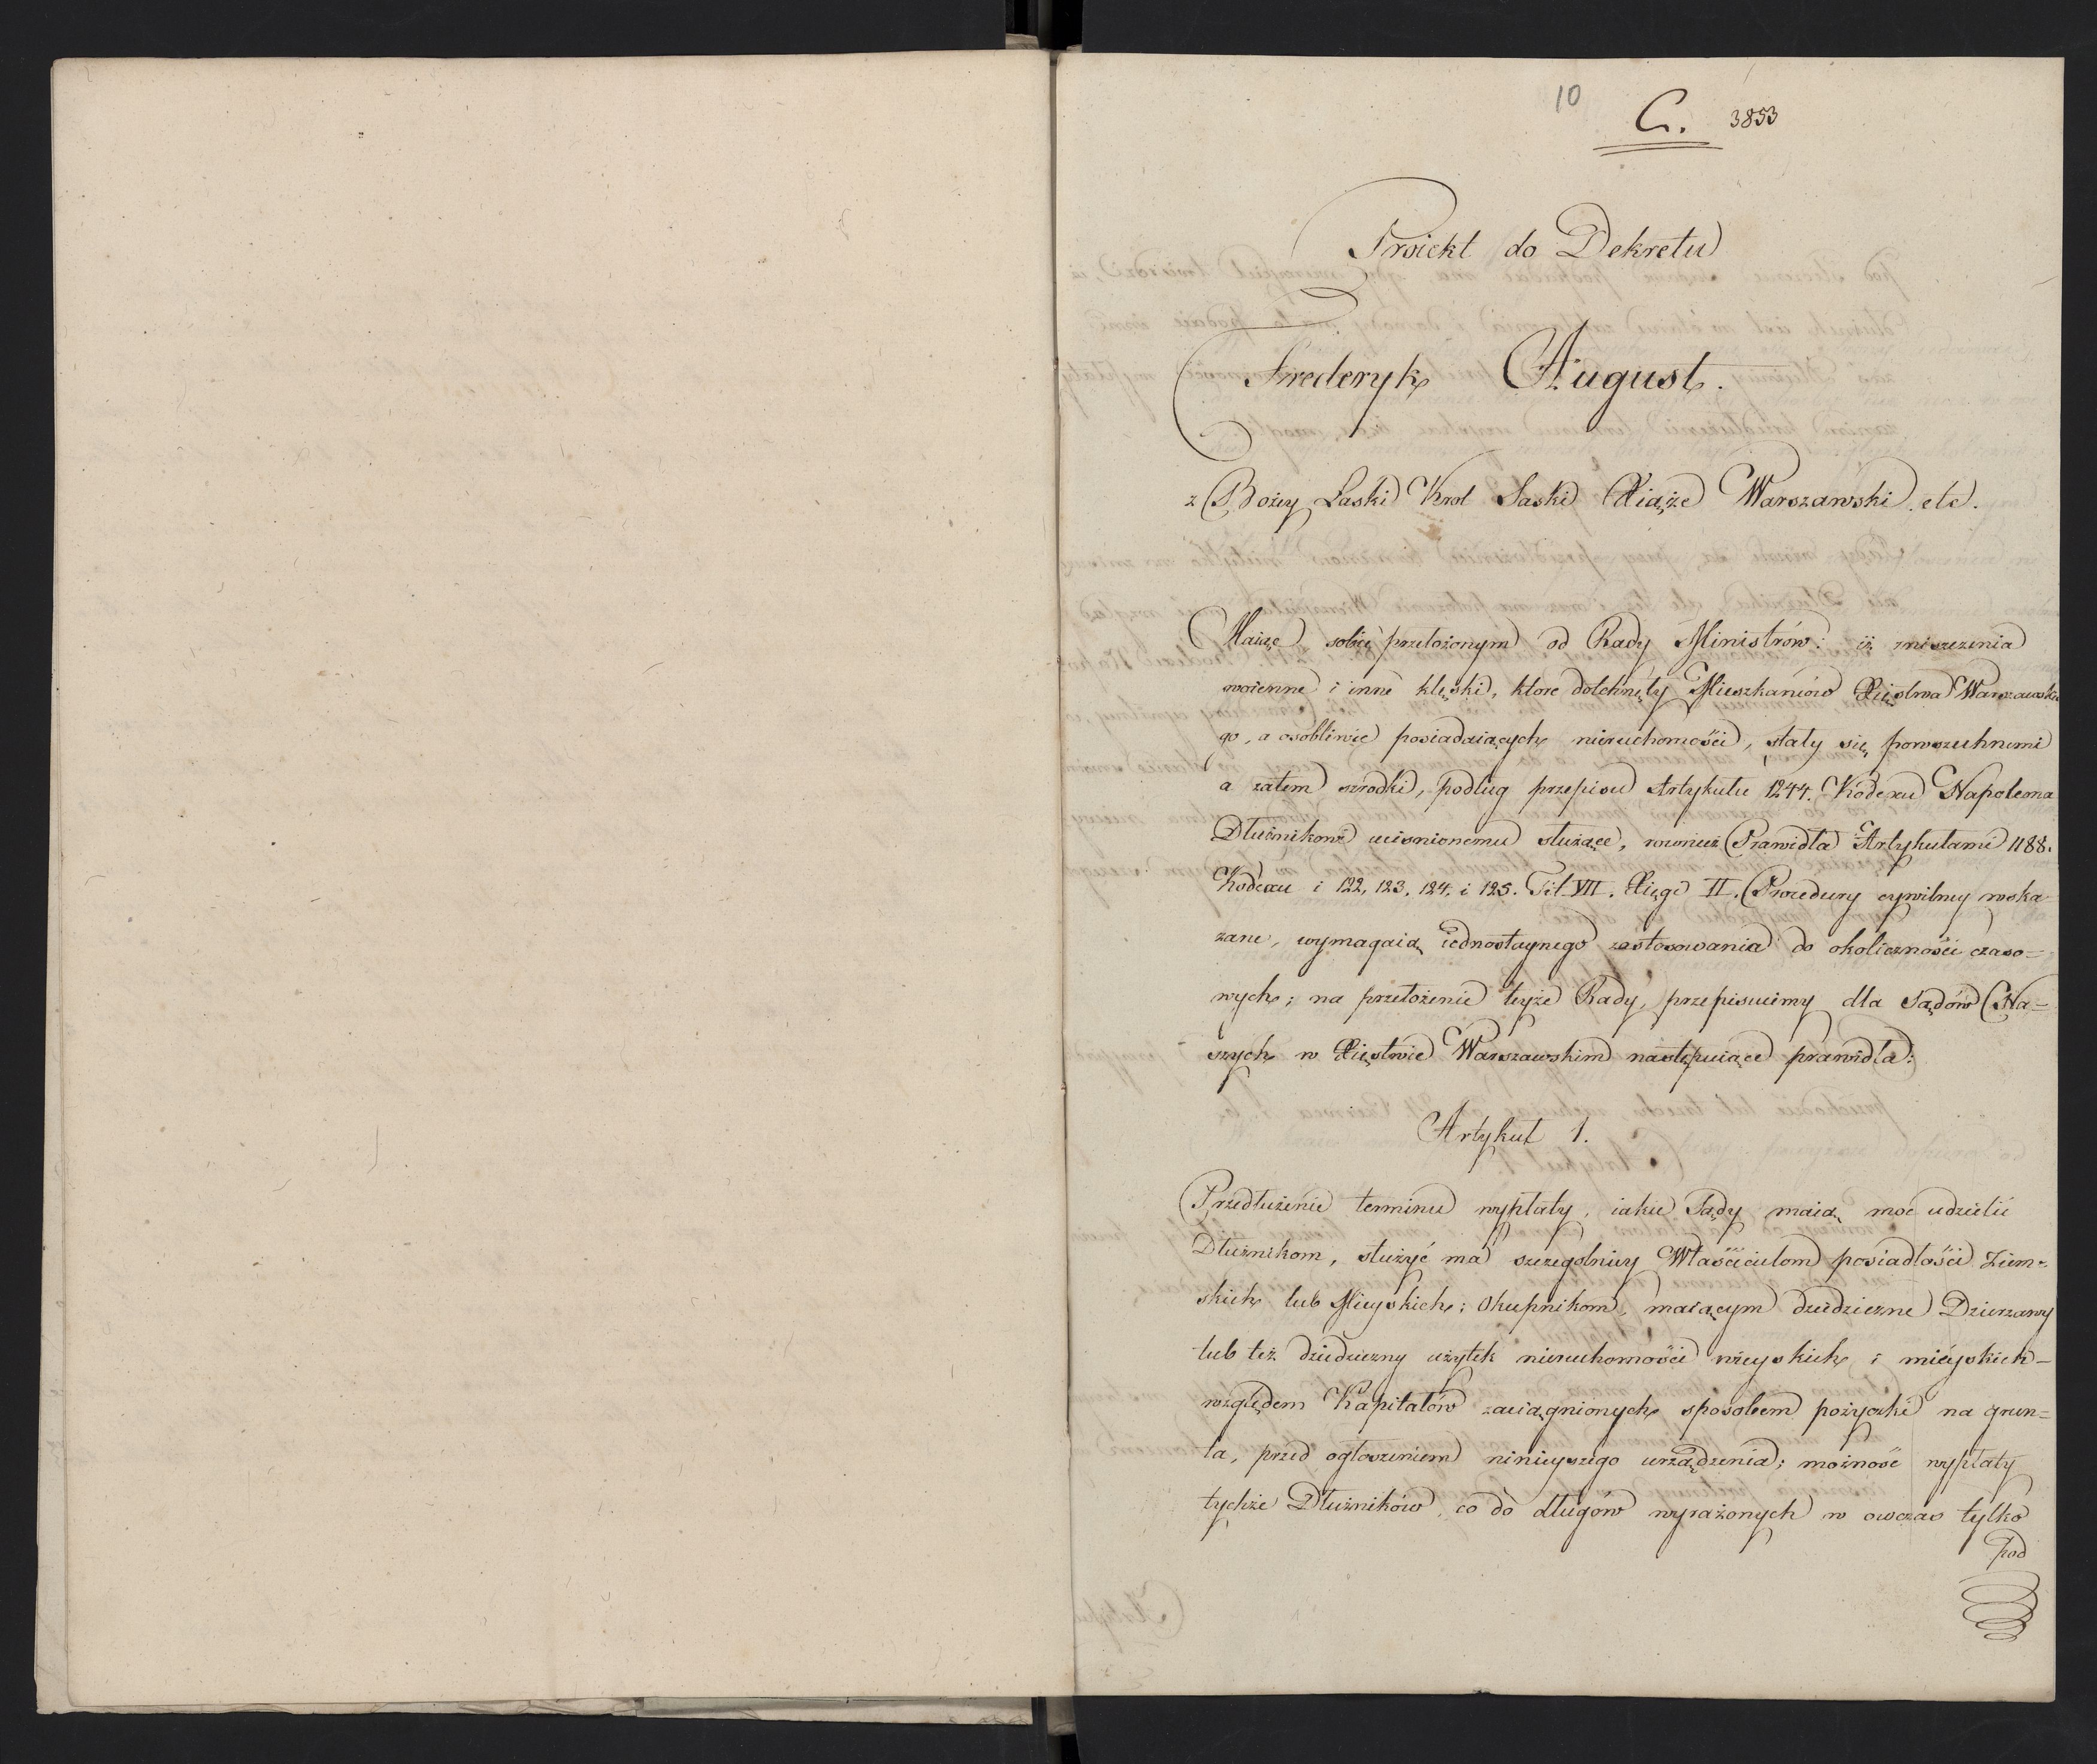 10
C. 3853
Proiekt do Dekretu
Frederyk August.
z Bożey Łaski Krol Saski Xiąże Warszawski. etc.
Maiąc sobie przełożonym od Rady Ministrów: iż zniszczenia
woienne i inne klęski, ktore dotchnęły Mieszkańców Xięstwa Warszawskie
go, a osobliwie posiadaiących nieruchomości, stały się powszechnemi
a zatem szrodki, podług przepisu Artykułu 1244. Kodexu Napoleona
Dłużnikowi uciśnionemu służące, rownież Prawidła Artykułami 1188.
Kodexu i 122, 123. 124. i 125. Tit. VII. Xięgi II. Procedury cywilney wska
zane, wymagaią iednostaynego zastosowania do okoliczności czaso=
wych; na przełożenie teyże Rady, przepisuimy dla Sądów Na=
szych w Xięstwie Warszawskim następuiące prawidła:
Artykuł 1.
Przedłużenie terminu wypłaty, iakie Sądy maią moc udzielić
Dłużnikom, służyć ma szczegolniey Właścicielom posiadłości Ziem=
skich lub Mieyskich; Okupnikom, maiącym dziedziczne Dzierzawy
lub też dziedziczny użytek nieruchomości wieyskich i mieyskich -
względem Kapitałów zaciągnionych sposobem pożyczki na grun=
ta, przed ogłoszeniem ninieyszego urządzenia; możność wypłaty
tychże Dłużników, co do długów wyrażonych w owczas tylko
pod